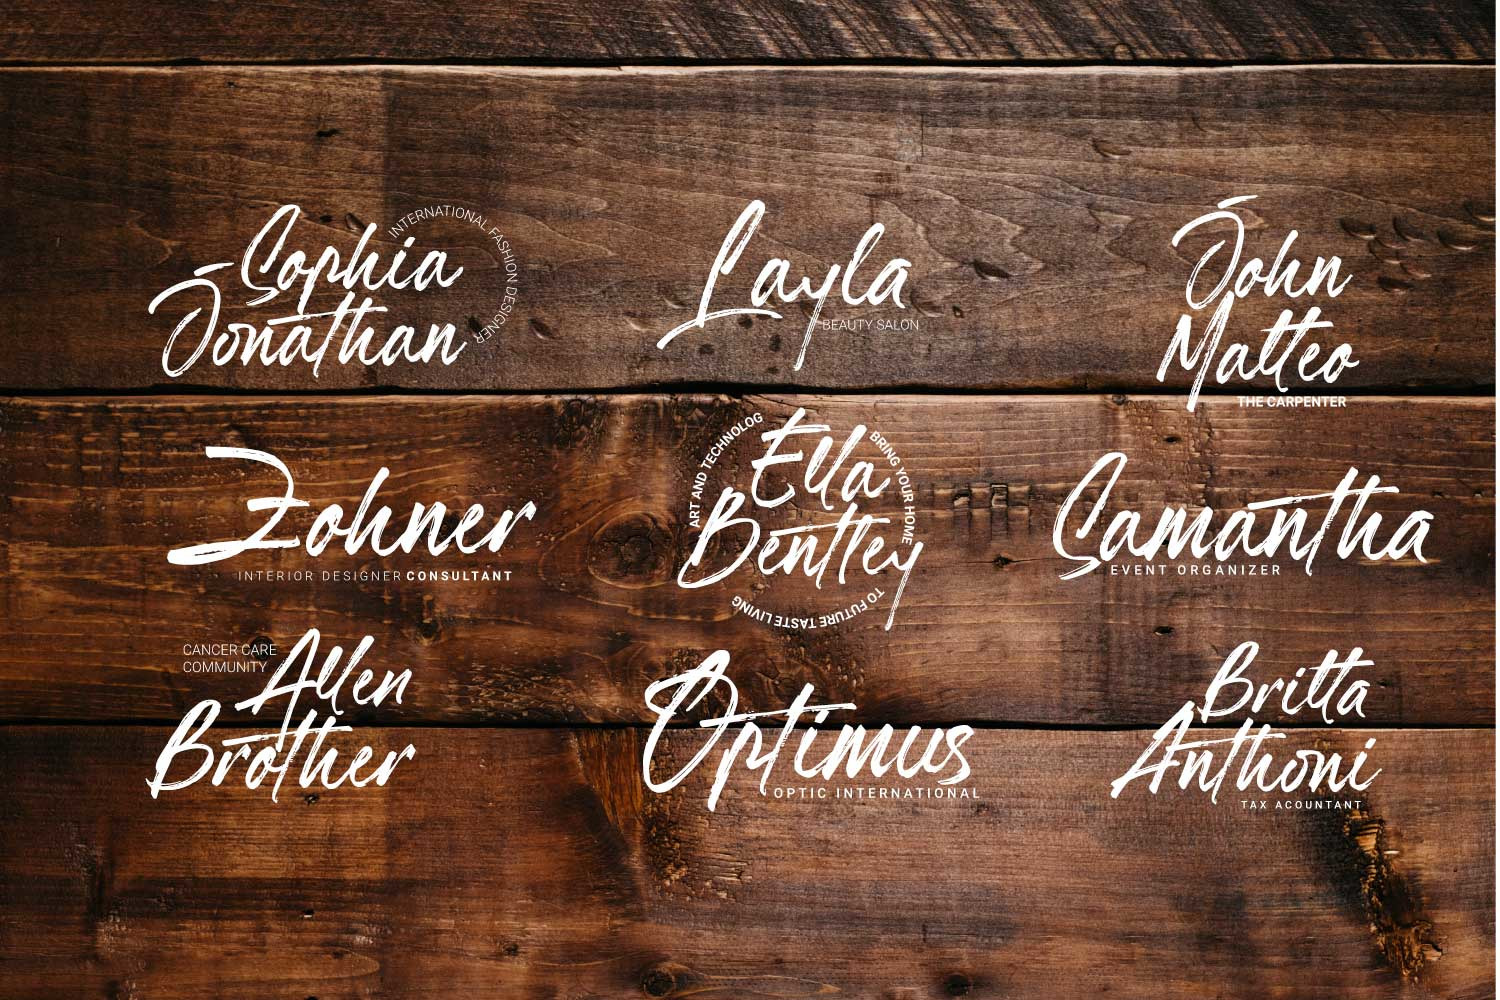 Sophia
Jonathan
INTERNATIONAL FASHION DESIGNER
Layla
BEAUTY SALON
John
Matteo
THE CARPENTER
Zohner
INTERIOR DESIGNER CONSULTANT
ART AND TECHNOLOG
BRING YOUR HOME
Ella
Bentley
TO FUTURE TASTE LIVING
Samantha
EVENT ORGANIZER
CANCER CARE
COMMUNITY
Allen
Brother
Optimus
OPTIC INTERNATIONAL
Britta
Anthoni
TAX ACOUNTANT